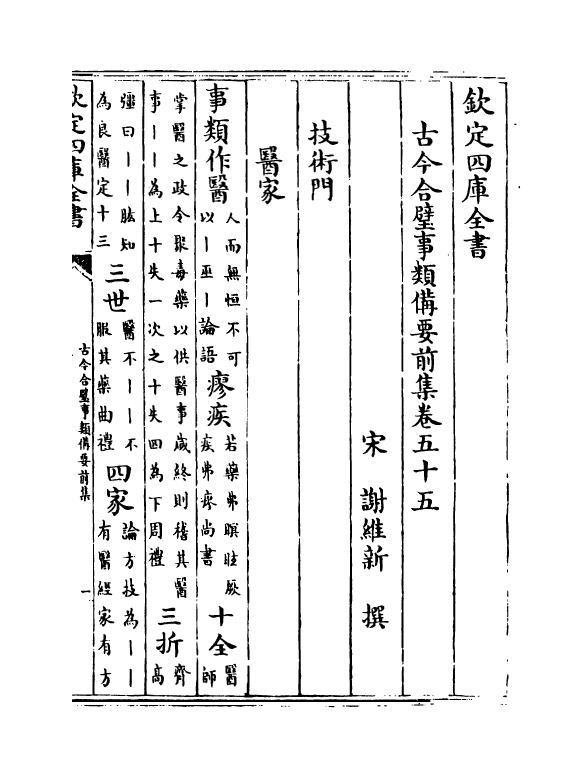 欽定四庫全書
古今合璧事類備要前集卷五十五
宋 謝維新 撰
技術門
醫家
事類作醫 人而無恒不可以丨巫丨論語 瘳疾 若藥弗瞑眩厥疾弗瘳尚書 十全 醫師
掌醫之政令聚毒藥以供醫事歲終則稽其醫事丨丨為上十失一次之十失四為下周禮 三折 齊高
彊曰丨丨肱知為良醫定十三 三世 醫不丨丨不服其藥曲禮 四家 論方技為丨丨有醫經家有方
欽定四庫全書
古今合璧事類備要前集
一